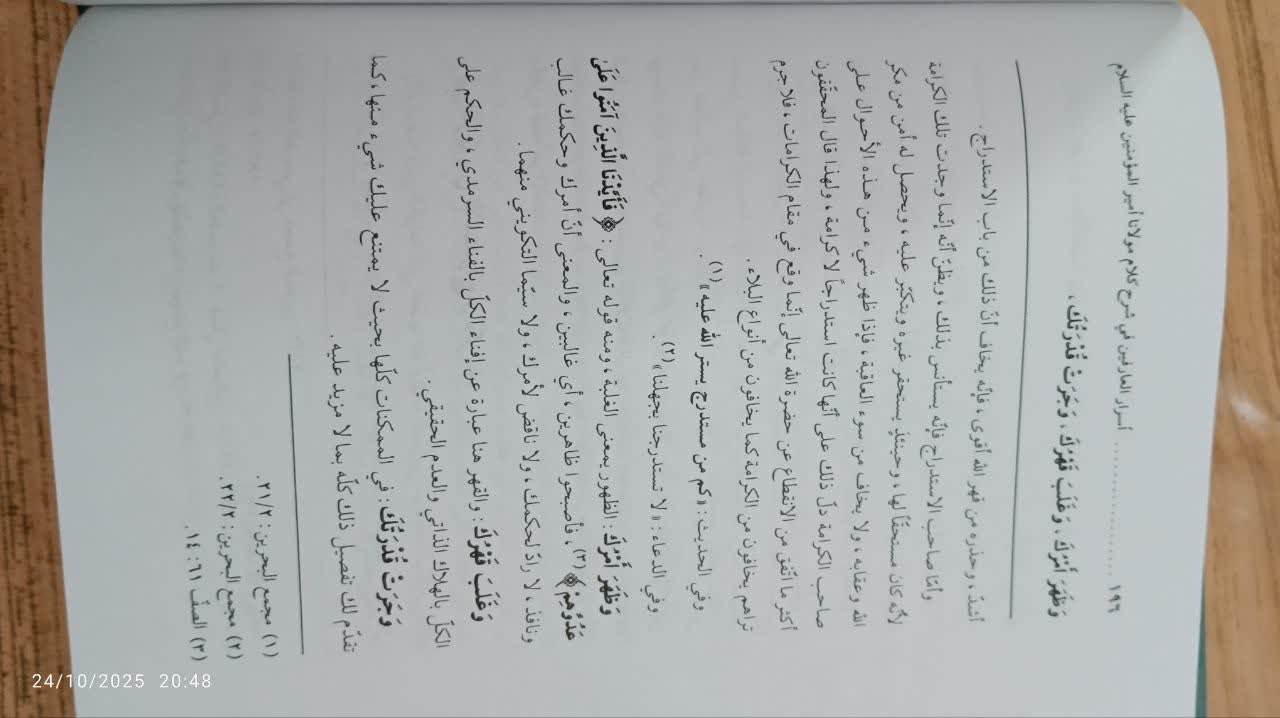 ١٩٦ .................... أسرار العارفين في شرح كلام مولانا أمير المؤمنين عليه السلام
وَظَهَرَ أَمْرُكَ، وَغَلَبَ قَهْرُكَ، وَجَرَتْ قُدْرَتُكَ،
أشدّ، وحذره من قهر الله أقوى، فإنّه يخاف أنّ ذلك من باب الاستدراج.
وأمّا صاحب الاستدراج فإنّه يستأنس بذلك، ويظنّ أنّه إنّما وجدت تلك الكرامة
لأنّه كان مستحقّاً لها، وحينئذٍ يستحقر غيره ويتكبّر عليه، ويحصل له أمن من مكر
الله وعقابه، ولا يخاف من سوء العاقبة، فإذا ظهر شيء من هذه الأحوال على
صاحب الكرامة دلّ ذلك على أنّها كانت استدراجاً لا كرامة، ولهذا قال المحقّقون
أكثر ما اتّفق من الانقطاع عن حضرة الله تعالى إنّما وقع في مقام الكرامات، فلا جرم
تراهم يخافون من الكرامة كما يخافون من أنواع البلاء.
وفي الحديث: «كم من مستدرج يستر الله عليه»(١).
وفي الدعاء: «لا تستدرجنا بجهلنا»(٢).
وَظَهَرَ أَمْرُكَ: الظهور بمعنى الغلبة، ومنه قوله تعالى: ﴿فَأَيَّدْنَا الَّذِينَ آمَنُوا عَلَىٰ
عَدُوِّهِمْ﴾(٣)، فأصبحوا ظاهرين، أي غالبين، والمعنى أنّ أمرك وحكمك غالب
ونافذ، لا رادّ لحكمك، ولا ناقض لأمرك، ولا سيّما التكويني منهما.
وَغَلَبَ قَهْرُكَ: والقهر هنا عبارة عن إفناء الكلّ بالفناء السرمدي، والحكم على
الكلّ بالهلاك الذاتي والعدم الحقيقي.
وَجَرَتْ قُدْرَتُكَ: في الممكنات كلّها بحيث لا يمتنع عليك شيء منها، كما
تقدّم لك تفصيل ذلك كلّه بما لا مزيد عليه.
(١) مجمع البحرين: ٢١/٢.
(٢) مجمع البحرين: ٢٢/٢.
(٣) الصفّ ٦١: ١٤.
24/10/2025 20:48